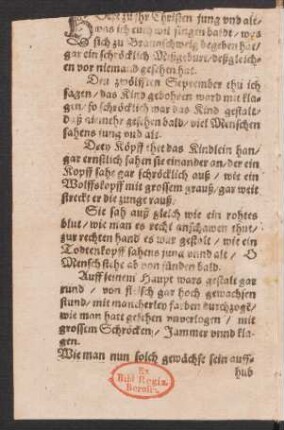 Hört zu ihr Christen jung vnd alt /
was ich euch wil singen baldt / was
sich zu Braunschweig begeben hat /
gar ein schröcklich Mißgeburt / deßgleich-
en vor niemand gesehen hat.
Den zwölfften September thu ich
sagen / das Kind gebohren word mit kla-
gen / so schröcklich war das Kind gestalt /
daß nunmehr geschen bald / viel Menschen
sahens jung vnd alt.
Drey Köpff thet das Kindlein han /
gar ernstlich sahen sie einander an / der ein
Kopff sahe gar schröcklich auß / wie ein
Wolffskopff mit grossem grauß / gar weit
streckt er die zunge rauß.
Sie sah auß gleich wie ein rohtes
blut / wie man es recht anschawen thut /
zur rechten hand es war gestalt / wie ein
Todtenkopff sahens jung vnnd alt / O
Mensch stehe ab von sünden bald.
Auff seinem Haupt wars gestalt gar
rund / von fleisch gar hoch gewachsen
stund / mit mancherley farben durchzogē /
wie man hatt gesehen vnverlogen / mit
grossem Schröcken / Jammer vnnd kla-
gen.
Wie man nun solch gewächse sein auff-
hub
Ex
Bibl. Regia
Berolin.